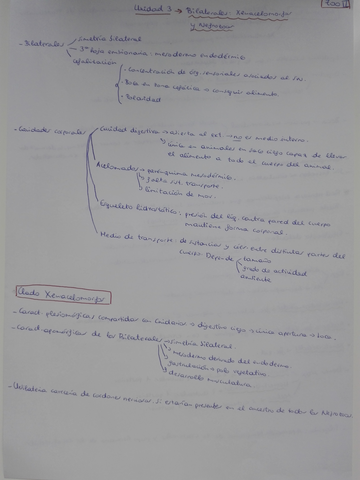 Unidad 3 → Bilaterales: Xenacelomorfos
y Nefrozoos
- Bilaterales
Simetría bilateral
3ª hoja embrionaria: mesodermo endodérmico
Cefalización
- Concentración de órg. sensoriales
- Boca en zona cefálica → conseguir alimento
- Polaridad
- Cavidades corporales
Cavidad digestiva → abierta al ext. → no es medio interno.
único en animales en saco ciego capaz de llevar
el alimento a todo el cuerpo del animal.
Acelomados → parénquima mesodérmico.
falta sist. transporte
limitación de mov.
Esqueleto hidrostático: presión del líq. contra pared del cuerpo
mantiene forma corporal
Medio de transporte de sustancias y entre distintas partes del
cuerpo. Depende
tamaño
grado de actividad
ambiente
Clado Xenacelomorfos
- Caract. plesiomórficas compartidas con Cnidarios → digestivo ciego → única apertura → boca.
- Caract. apomórficas de los Bilaterales
simetría bilateral.
mesodermo derivado del endodermo
gastrulación → polo vegetativo
desarrollo musculatura
- Bilateria carecía de estarían presentes en el ancestro de todos los Nefrozoos